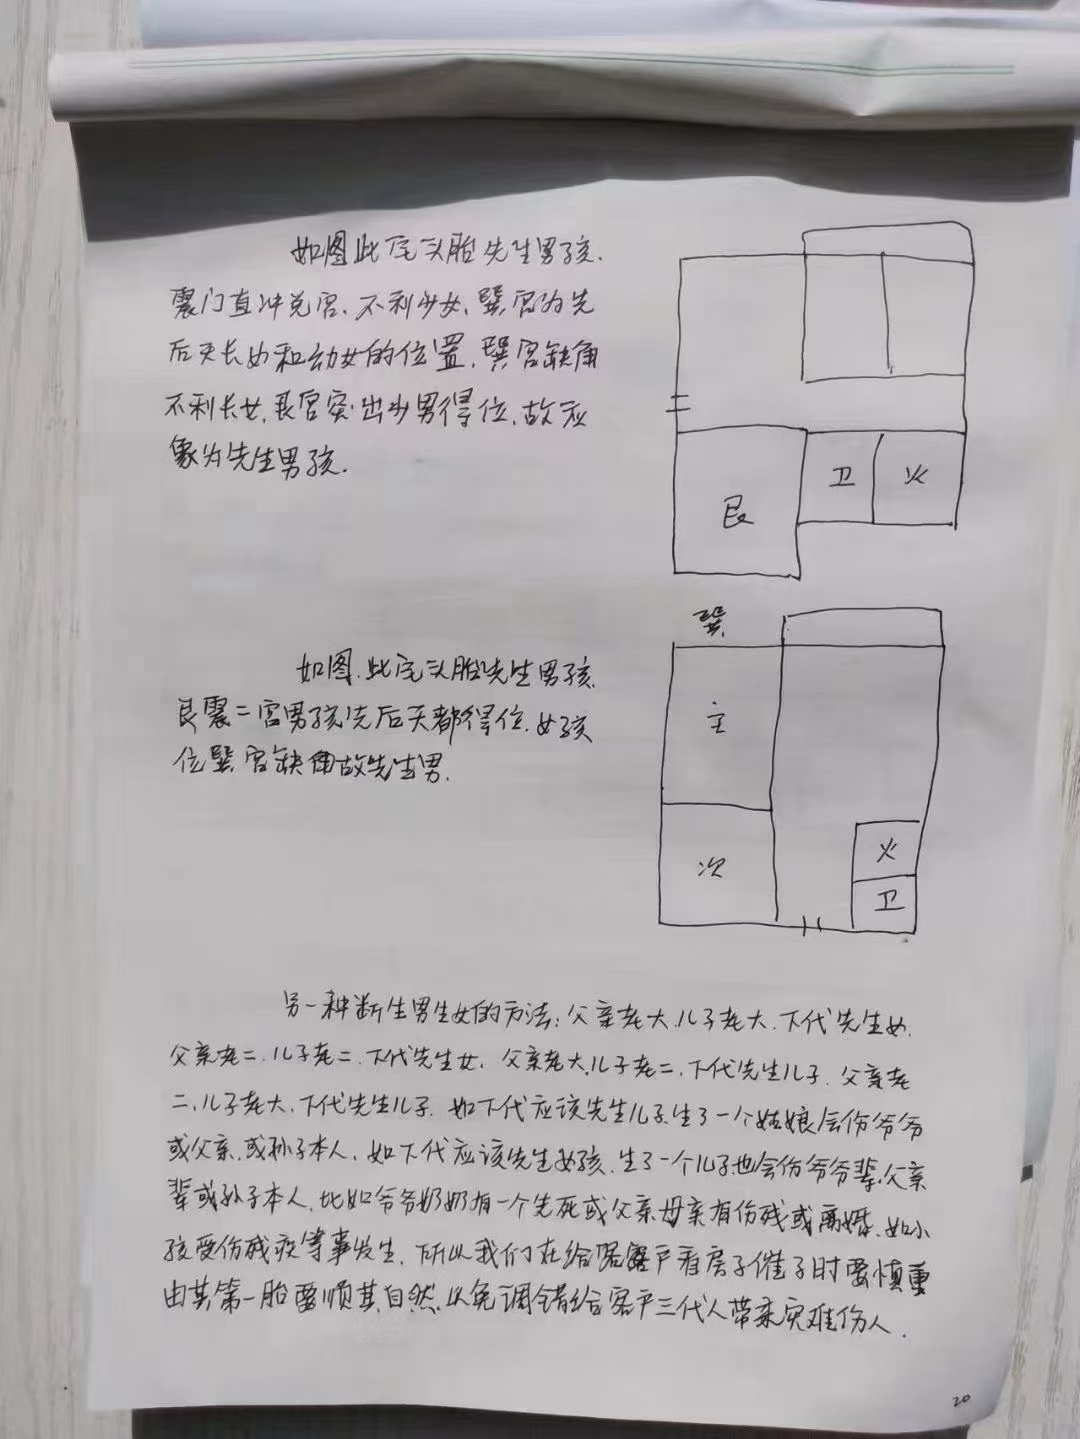 如图此宅头胎先生男孩.
震门直冲兑宫、不利少女、巽宫为先
后天长女和幼女的位置.巽宫缺角
不利长女.艮宫突出少男得位.故应
象为先生男孩.
艮
卫
火
巽
如图.此宅头胎先生男孩.
艮震二宫男孩先后天都得位.女孩
位巽宫缺角故先生男.
主
次
火
卫
另一种断生男生女的方法:父亲老大.儿子老大.下代先生女.
父亲老二.儿子老二.下代先生女.父亲老大.儿子老二.下代先生儿子.父亲老
二.儿子老大.下代先生儿子.如下代应该先生儿子.生了一个姑娘会伤爷爷
或父亲.或孙子本人.如下代应该先生女孩.生了一个儿子也会伤爷爷辈.父亲
辈或孙子本人.比如爷爷奶奶有一个先死或父亲母亲有伤残或离婚.如小
孩受伤残疾等事发生.所以我们在给客户看房子催子时要慎重
由其第一胎要顺其自然.以免调错给客户三代人带来灾难伤人.
20